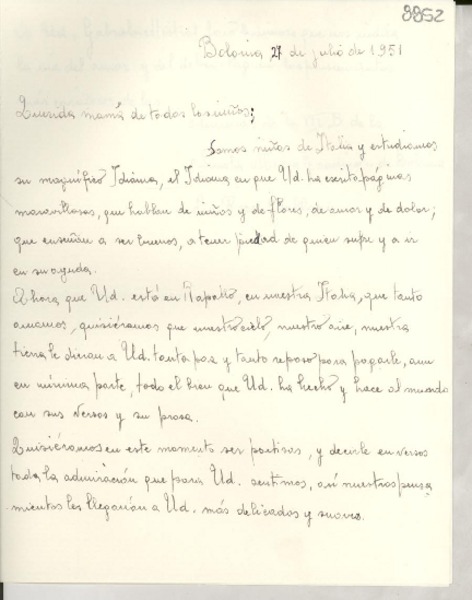 8852
Bolonia 27 de julio de 1951
Querida mamá de todos los niños;
Somos niñas de Italia y estudiamos
su magnífico Idioma, el Idioma en que Ud. ha escrito páginas
maravillosas, que hablan de niños y de flores, de amor y de dolor;
que enseñan a ser buenos, a tener piedad de quien sufre y a ir
en su ayuda.
Ahora que Ud. está en Rapallo, en nuestra Italia, que tanto
amamos, quisiéramos que nuestro cielo, nuestro aire, nuestra
tierra le dieran a Ud. tanta paz y tanto reposo para pagarle, aun
en mínima parte, todo el bien que Ud. ha hecho y hace al mundo
con sus versos y su prosa.
Quisiéramos en este momento ser poetisas, y decirle en versos
toda la admiración que para Ud. sentimos, así nuestros pensa
mientos les llegarían a Ud. más delicados y suaves.